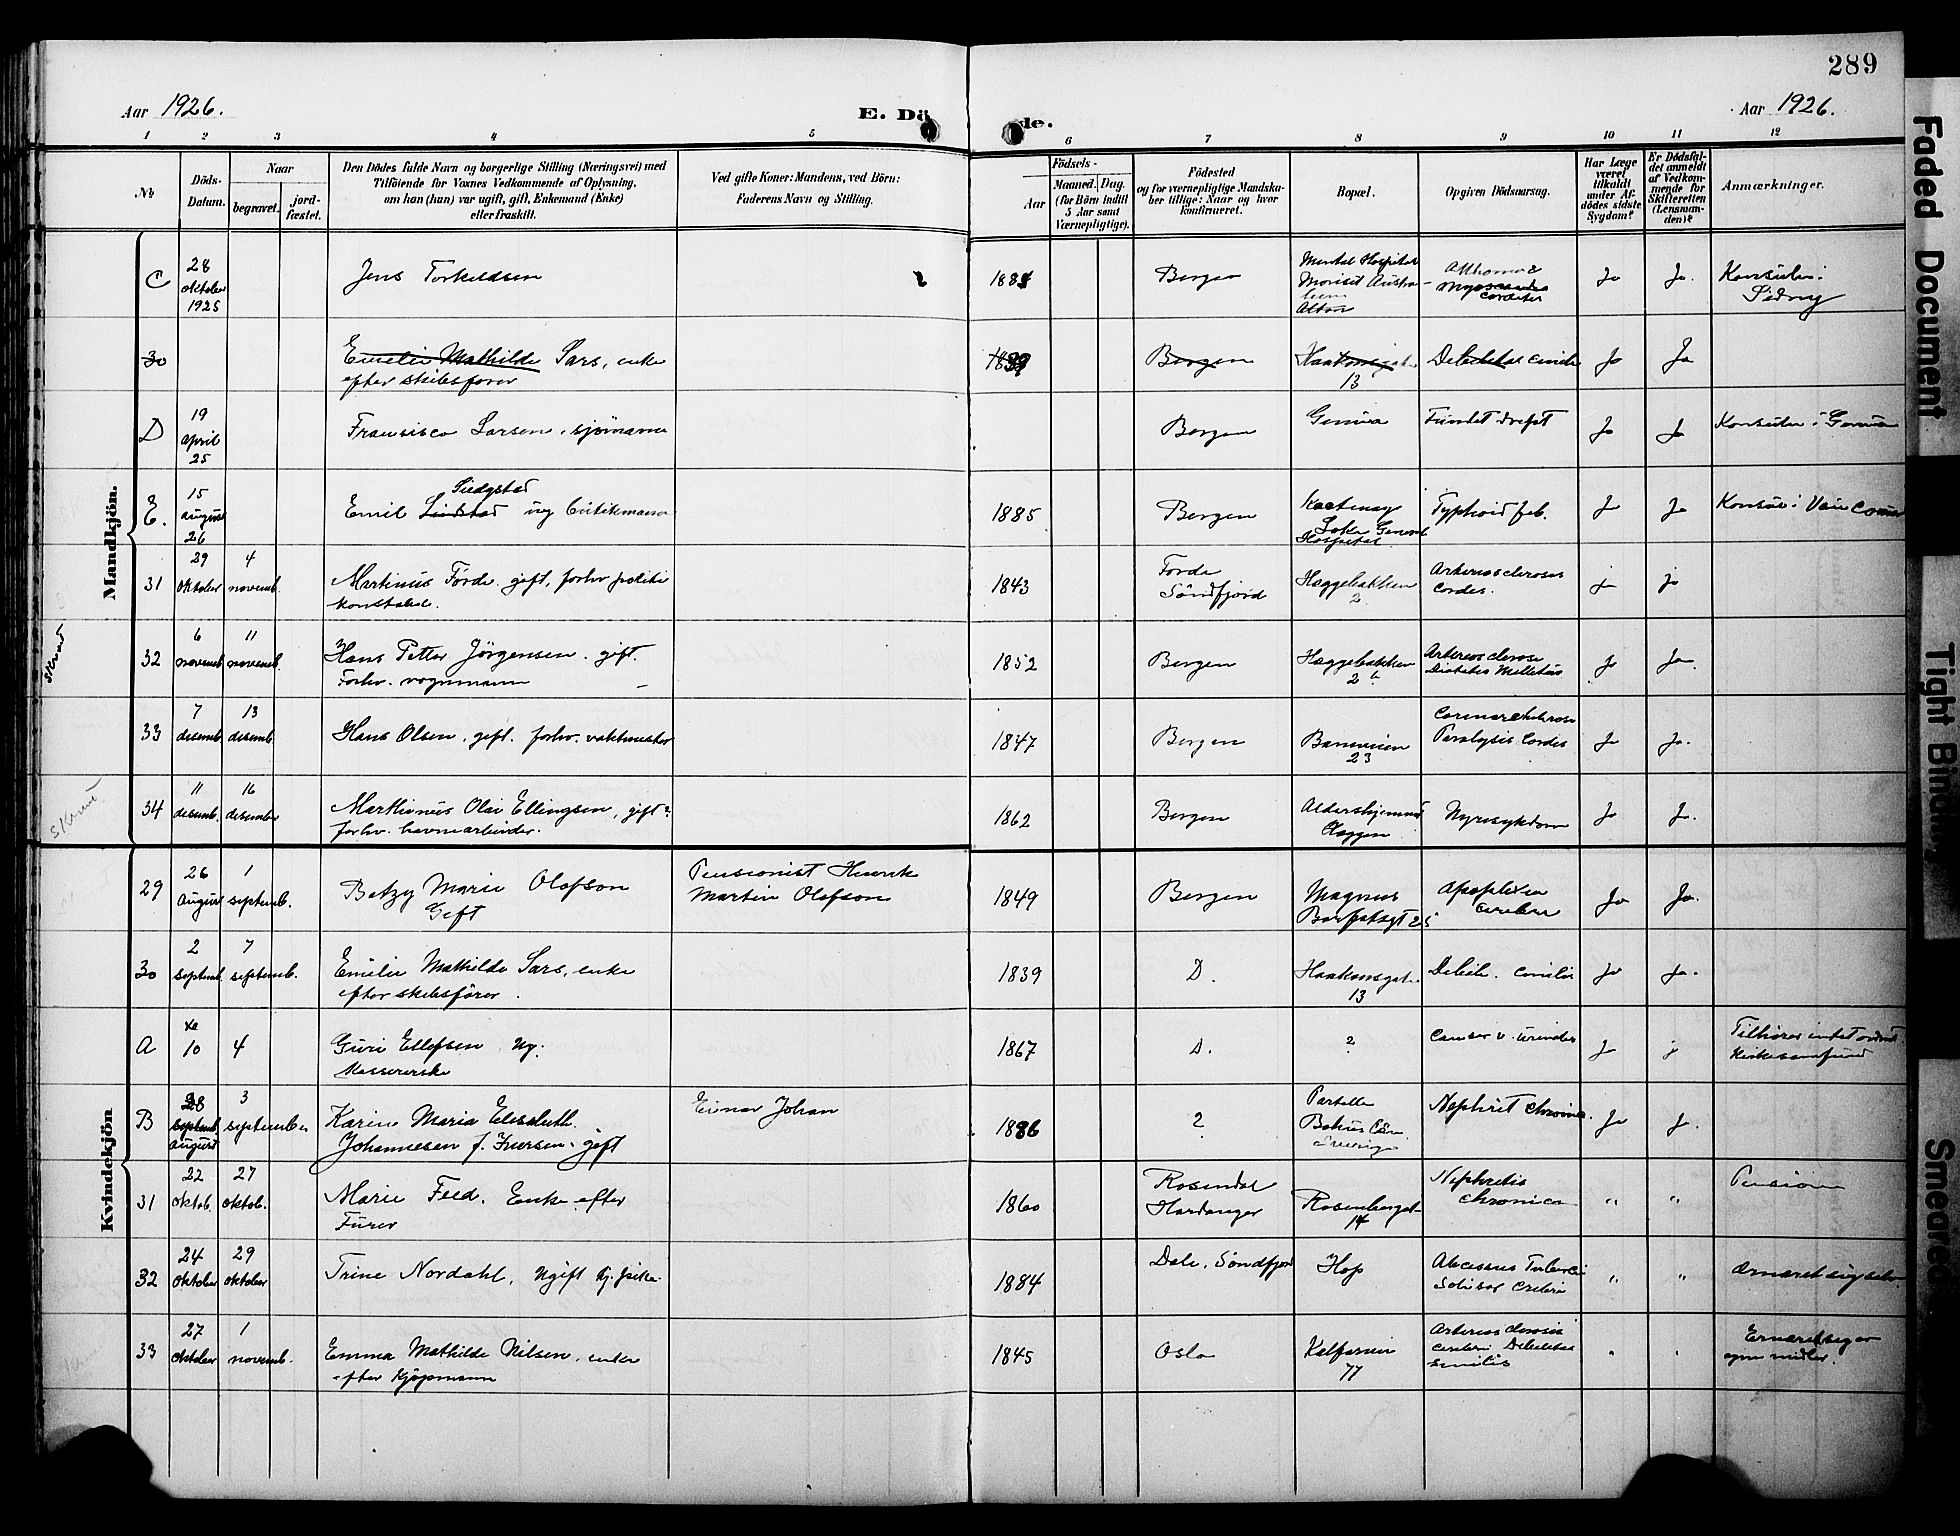 289
Aar 1926.
E. Dö de.
Aar 1926.
1 2 3 4 5 6 7 8 9 10 11 12
No.
Döds-Datum.
Naar
begravet.
jord-fæstet.
Den Dödes fulde Navn og borgerlige Stilling (Næringsvei) med
Tilföiende for Voxnes Vedkommende af Oplysning,
om han (hun) var ugift, gift, Enkemand (Enke)
eller fraskilt.
Ved gifte Koner: Mandens, ved Börn:
Faderens Navn og Stilling.
Födsels-
Aar
Maaned. Dag.
(for Börn indtil
5 Aar samt
Værnepligtige).
Födested
og for værnepligtige Mandska-
ber tillige: Naar og hvor
konfirmeret.
Bopæl.
Opgiven Dödsaarsag.
Har Læge
været
tilkaldt
under Af-
dödes sidste
Sygdom?
Er Dödsfal-
det anmeldt
af Vedkom-
mende for
Skifteretten
(Lensman-
den)?
Anmærkninger.
Mandkjön.
C 28 oktober 1925 Jens Torkildsen Bergen Mental Hospital Morisit Jo Jo. Konsulen i Sidney
30 Emilie Mathilde Sars, enke efter skibsförer 1839 Bergen Haakonsgaten 13 Jo Jo
D 19 april 25 Fransisco Larsen, sjömann Bergen Genua Fundet dræpt Jo Jo Konsulen i Genua
E. 15 august 26 Emil Lindstad ug butikmann 1885 Bergen Lake General Hospital Typhoid feb. Jo Jo Konsul i Vancouver
31 29 oktober 4 novemb. Martinus Förde. gift, forhv politikonstabel. 1843 Förde Söndfjord Hæggebakken 2 Arteriosclerosis Cordis. j. jo
skrevet
32 6 novemb. 11 novemb. Hans Petter Jörgensen. gift. Forhv. vognmann 1852 Bergen Hæggebakken 2 b Arteriosclerose Diabetes Mellitus Jo Jo.
33 7 desemb. 13 desemb. Hans Olsen, gift. forhv. vaktmester 1847 Bergen 23 Paralysis Cordis Jo Jo.
34 11 desemb. 16 desember Marthinus Olai Ellingsen, gift forhv. havnearbeider. 1862 Bergen Aldershjemmet Nyresykdom Jo J.
Kvindekjön
29 26 august 1 septemb. Betzy Marie Olofson Gift Pensionist Henrik Martin Olofson 1849 Bergen Magnus Barfotsgt 25 Apoplexia cerebri Jo Jo.
30 2 septemb. 7 septemb. Emilie Mathilde Sars, enke efter skibsförer. 1839 D. Haakonsgaten 13 Debil. senilis Jo Jo.
A 10 4 Guri Ellefsen Ug. Kassererske 1867 D. ? Jo j Tilhörer intet ordnet kirkesamfund
B 28 septemb. august 3 september Karen Maria Elisabeth Johannesen f. Iversen. gift Einar Johan 1886 ? Partille Bohus Län Sverige Nephrit chronica. Jo J.
31 22 oktob. 27 oktob. Marie Feed. Enke efter Furer 1860 Rosendal Hardanger Rosenbergsgt 14 Nephritis chronica " " Pension
32 24 oktober 29 oktober Trine Nordahl, Ugift 1884 Dale, Söndfjord Hop " " Ernæret sig selv
33 27 oktober 1 novemb. Emma Mathilde Nilsen, enke efter Kjöpmann 1845 Oslo Kalfarvei 77 Arteriosclerosis cerebri Debilitas senilis " " Ernæret sig av egne midler.
Faded Document
Tight Binding
Smeared